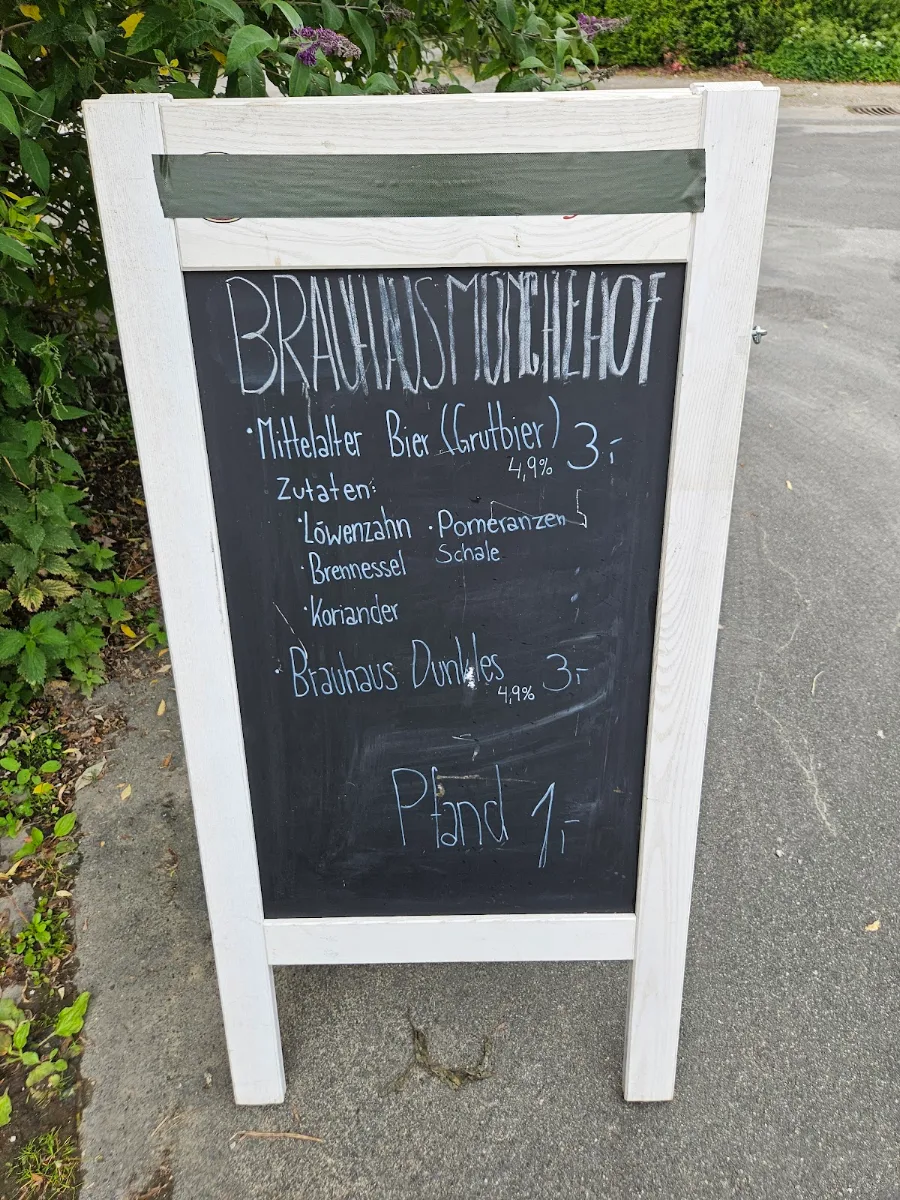 BRAUHAUS MÜNCHEHOF
·Mittelalter Bier (Grutbier) 3,-
4,9%
Zutaten:
·Löwenzahn ·Pomeranzen
Schale
·Brennessel
·Koriander
·Brauhaus Dunkles 3,-
4,9%
Pfand 1,-